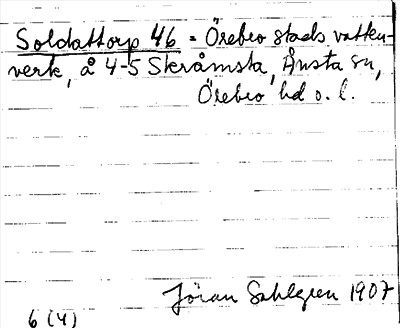 Soldattorp 46 = Örebro stads vatten-
verk, å 4-5 Skråmsta, Ånsta sn,
Örebro hd o. l.
Jöran Sahlgren 1907
6 (4)